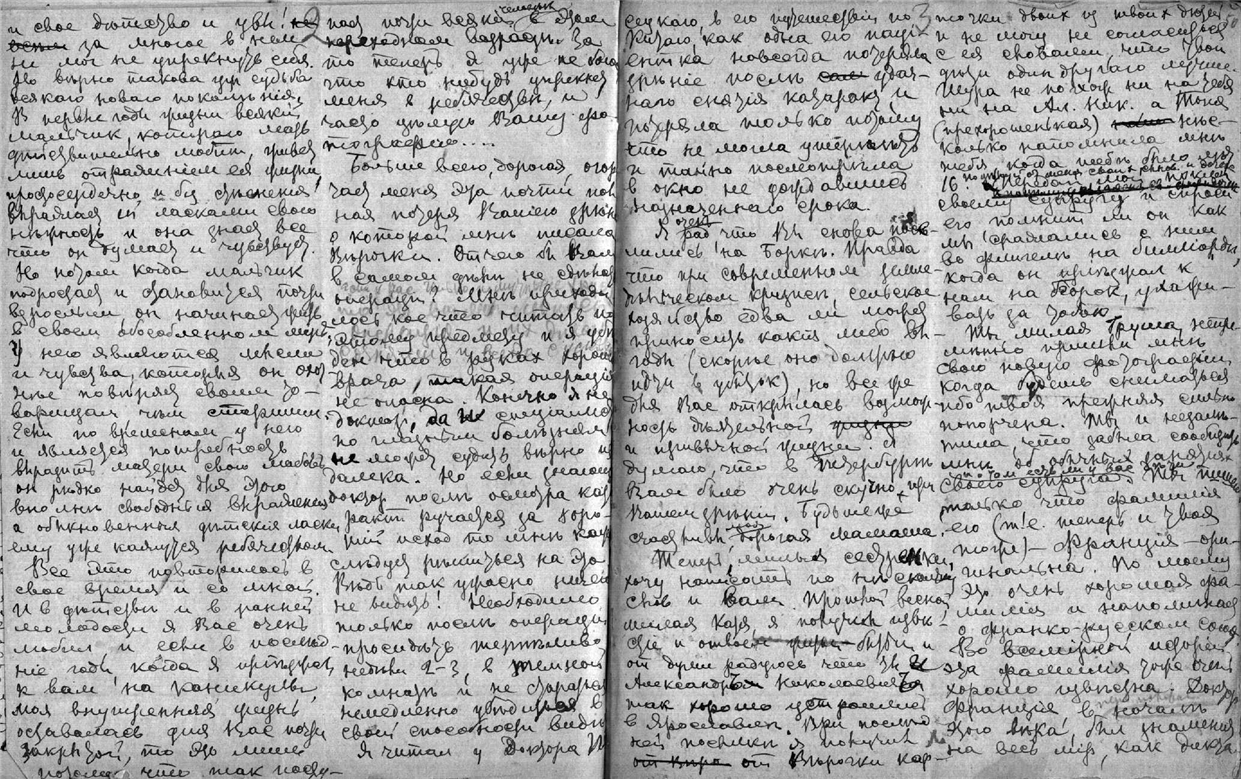 и свое дѣтство и увы! не
за многое в нем
не мог не упрекнуть себя.
Но вѣрно такова уж судьба
всякаго новаго поколѣнія.
В первые годы жизни всякій
мальчик, котораго мать
дѣйствительно любит, живет
лишь отраженіем ея жизни
и без стѣсненія
выражает ей ласками свою
нѣжность и она знает все
что он думает и чувствует.
Но потом когда мальчик
подростает и становится почти
взрослым, он начинает жить
в своем обособленном мирѣ,
У него являются мысли
и чувства, которыя он охот-
нѣе повѣряет своим то-
варищам чѣм старшим.
Если по временам у него
и является потребность
выразить матери свою любовь
он рѣдко найдет для этого
вполнѣ свободныя выраженія
а обыкновенныя дѣтскія ласки
ему уже кажутся ребячеством.
Все это повторилось в
свое время и со мной.
И в дѣтствѣ и в ранней
молодости я Вас очень
любил и если в послѣд-
ніе годы, когда я пріѣзжал
к вам на каникулы,
моя внутренняя жизнь
оставалась для Вас почти
закрытой, то это лишь
потому, что так посту-
пает почти всякій человек в этом
переходном возрастѣ. За
то теперь я уже не боюсь
что кто нибудь упрекнет
меня в ребячествѣ, и
часто цѣлую Вашу фо-
тографію....
Больше всего, дорогая, огор-
чает меня эта почти пол-
ная потеря Вашего зрѣнія
о которой мнѣ писала
Вѣрочка. Отчего бы Вам
в самом дѣлѣ не сдѣлать
операціи? Мнѣ приходи-
лось кое что читать по
этому предмету и я убѣж-
ден что в руках хорошаго
врача, такая операція
не опасна. Конечно я не
доктор, да и спеціалист
по глазным болѣзням
не может судить вѣрно из-
далека. Но если знающій
доктор послѣ осмотра ката-
ракт ручается за хоро-
шій исход то мнѣ кажется
слѣдует рѣшиться на это
Вѣдь так ужасно ничего
не видѣть! Необходимо
только послѣ операціи
просидѣть терпѣливо
недѣли 2-3 в темной
комнатѣ и не стараться
немедленно убѣдиться в
своей способности видѣть
Я читал у доктора
в его путешествіи по
Китаю, как одна его паці-
ентка навсегда потеряла
зрѣніе послѣ удач-
наго снятія катаракт и
потеряла только потому
что не могла утерпѣть
и тайно посмотрѣла
в окно не дождавшись
назначеннаго срока.
Я очень рад что Вы снова посе-
лились на Боркѣ. Правда
что при современном земле-
дѣльческом кризисѣ, сельское
хозяйство едва ли может
приносить какія либо вы-
годы (скорѣе оно должно
идти в убыток), но все же
для Вас открылась возмож-
ность дѣятельной
и привычной жизни. Я
думаю, что в Петербургѣ
Вам было очень скучно при
Вашем зрѣніи. Будьте же
счастливы дорогая мамаша.
Теперь, милыя сестренки,
хочу написать по нѣсколько
слов и вам. Прошлой весной
милая Катя я получил
и
от души радуюсь что ты и
Александр Николаевич
так хорошо устроились
в Ярославлѣ. При послѣд-
ней посылкѣ я получил
от Вѣрочки кар-
точки двоих из твоих дѣтей
и не могу не согласиться
с ея словами, что твои
дѣти один другаго лучше.
Шура не похож ни на тебя
ни на Ал. Ник. а Таня
(прехорошенькая) нѣс-
колько напомнила мнѣ
тебя, когда тебѣ было лѣт
16. Передай мой поклон
своему супругу и спроси
его помнит ли он как
мы сражались с ним
во флигелѣ на билліардѣ,
когда он пріѣзжал к
нам на Борок, ухажи-
вать за тобой.
Ты, милая Груша, непре-
мѣнно пришли мнѣ
свою новую фотографію
когда будешь сниматься
ибо твоя прежняя сильно
попорчена. Ты и незамѣ-
тила, что забыла сообщить
мнѣ об обычных занятіях
своего супруга. Ты пишешь
только что фамилія
его (т.е. теперь и твоя
тоже) — Франція — ори-
гинальна. По моему
это очень хорошая фа-
милія и напоминает
о франко-русском союзѣ
Во всемірной исторіи
эта фамилія тоже очень
хорошо извѣстна. Доктор
Франція в началѣ
этого вѣка, был знаменит
на весь мір, как дикта-